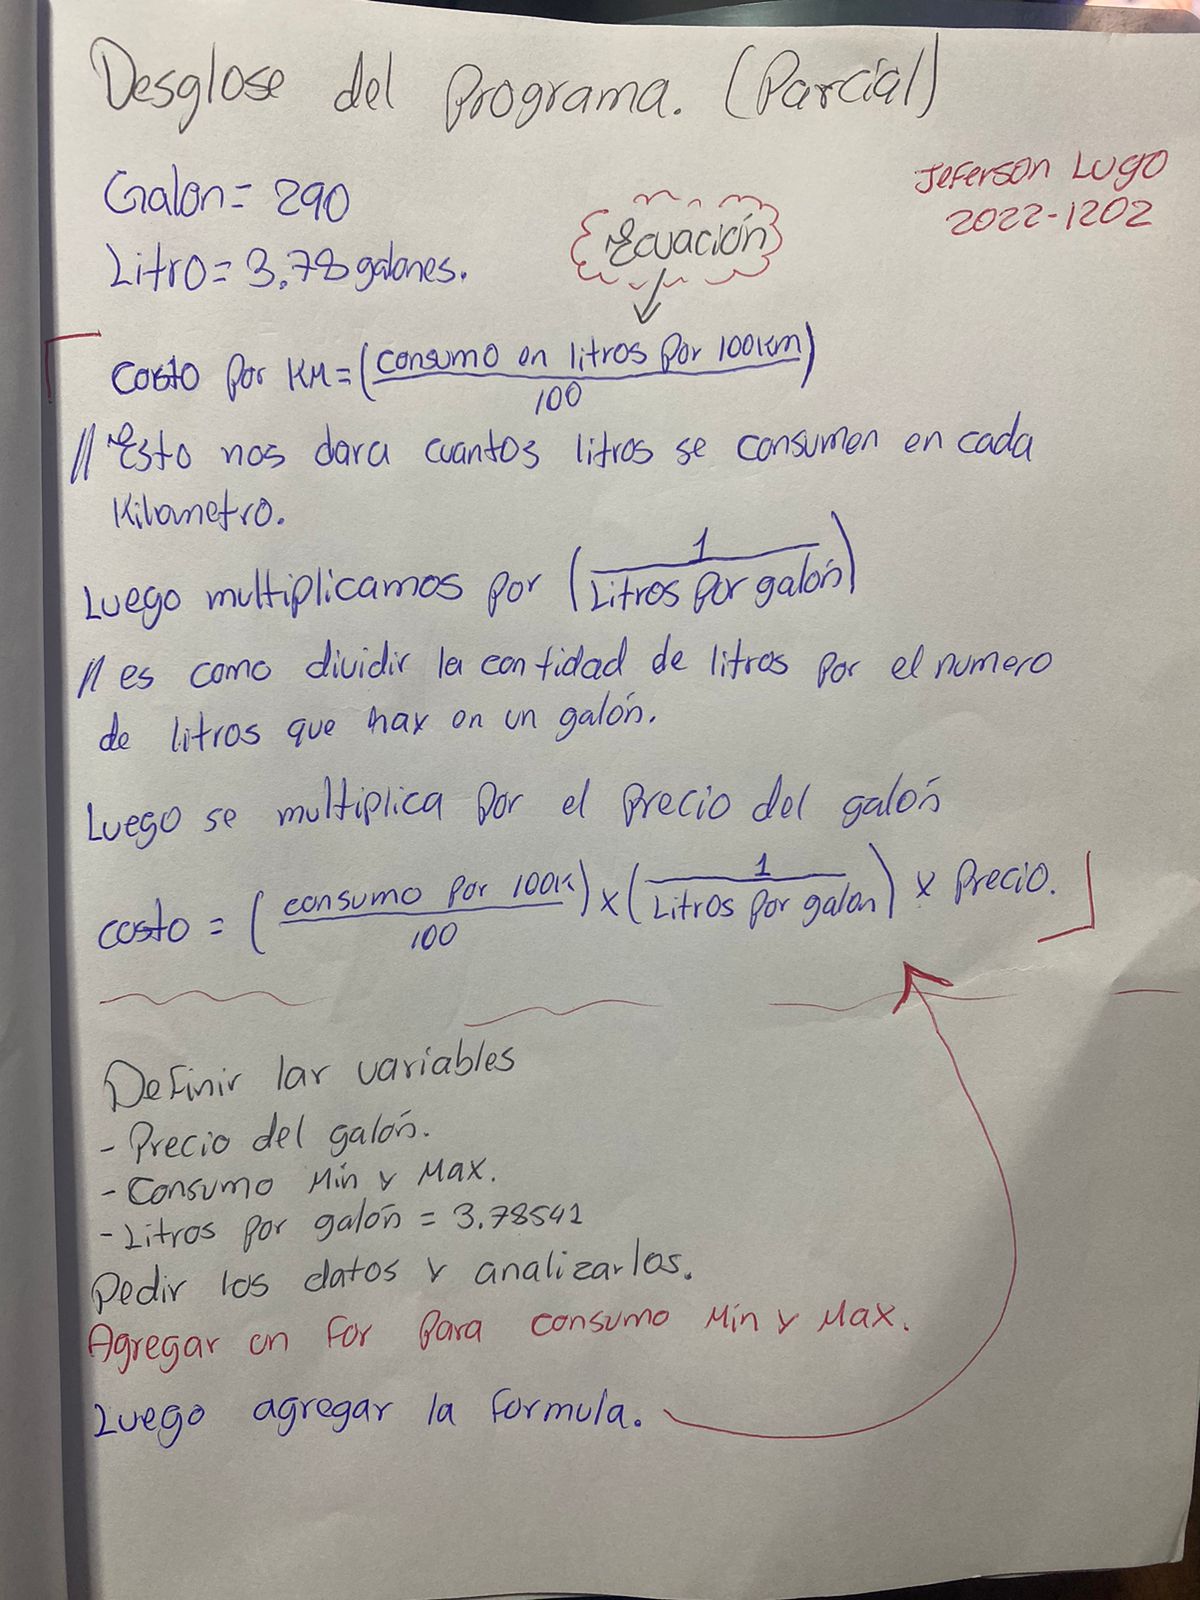 Desglose del Programa. (Parcial)
Jeferson Lugo
2022-1202
Galon = 290
Litro = 3.78 galones.
Ecuación
Costo por KM = (consumo en litros por 100Km / 100)
// Esto nos dara cuantos litros se consumen en cada
Kilometro.
Luego multiplicamos por (1 / Litros por galón)
// es como dividir la cantidad de litros por el numero
de litros que hay en un galón.
Luego se multiplica por el precio del galón
costo = (consumo por 100K / 100) x (1 / Litros por galon) x Precio.
Definir lar variables
- Precio del galón.
- Consumo Min y Max.
- Litros por galón = 3.78541
Pedir los datos y analizarlos.
Agregar un For para consumo Min y Max.
Luego agregar la formula.